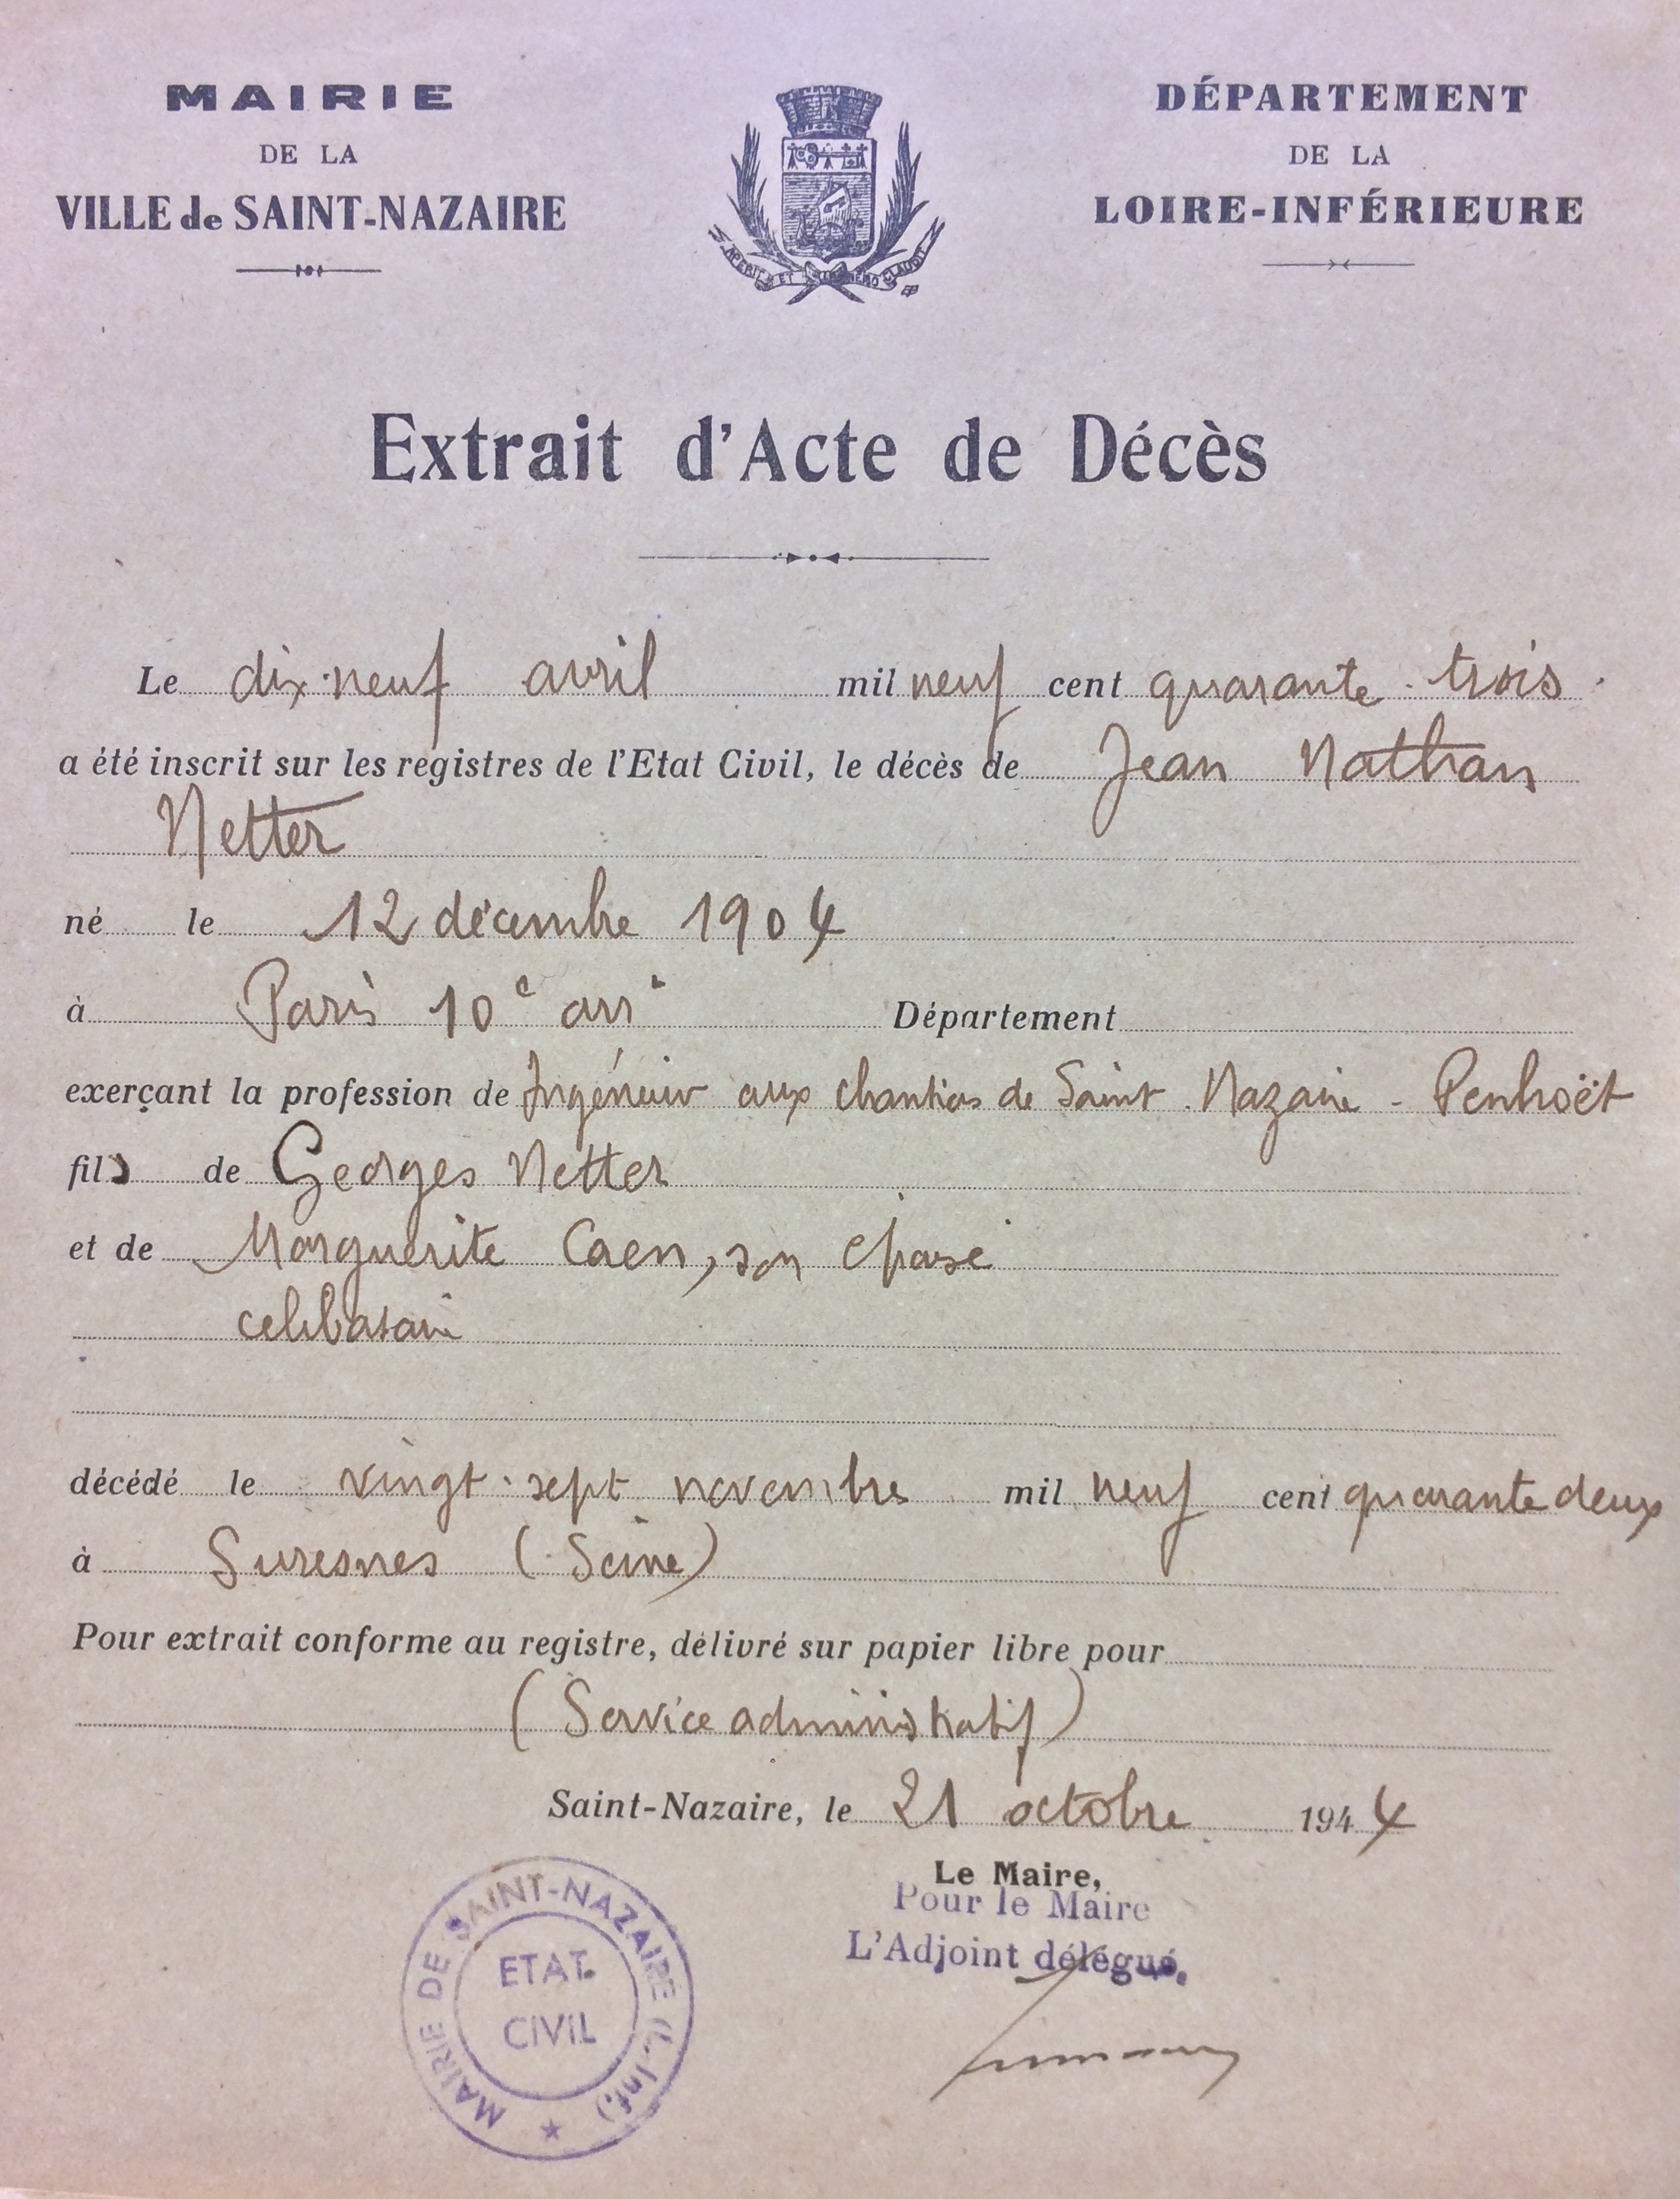 MAIRIE
DE LA
VILLE de SAINT-NAZAIRE
DÉPARTEMENT
DE LA
LOIRE-INFÉRIEURE
APERIT ET NEMO CLAUDIT
Extrait d'Acte de Décès
Le dix-neuf avril mil neuf cent quarante-trois
a été inscrit sur les registres de l'Etat Civil, le décès de Jean Nathan
Netter
né le 12 décembre 1904
à Paris 10e arrt Département
exerçant la profession de Ingénieur aux chantiers de Saint-Nazaire - Penhoët
fils de Georges Netter
et de Marguerite Caen, son épouse
celibataire
décédé le vingt-sept novembre mil neuf cent quarante deux
à Suresnes (Seine)
Pour extrait conforme au registre, délivré sur papier libre pour
(Service administratif)
Saint-Nazaire, le 21 octobre 1944
Le Maire,
Pour le Maire
L'Adjoint délégué,
MAIRIE DE SAINT-NAZAIRE (L. Inf.)
ETAT
CIVIL